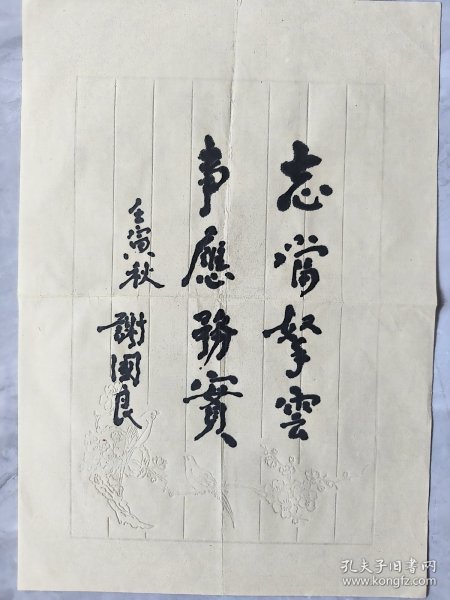 志當拏雲
事應務實
壬寅秋
謝国良
孔夫子旧书网
www.kongfz.com